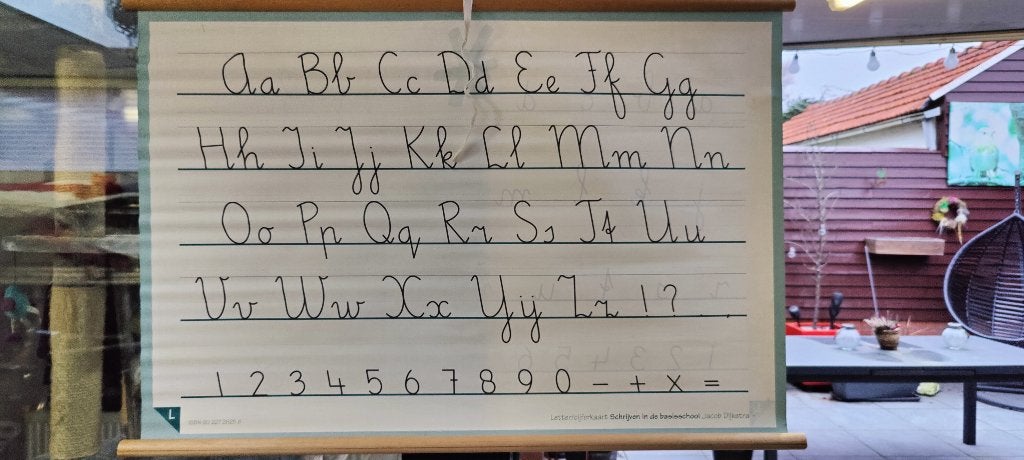 Aa Bb Cc Dd Ee Ff Gg
Hh Ii Jj Kk Ll Mm Nn
Oo Pp Qq Rr Ss Tt Uu
Vv Ww Xx Yij Zz ! ? . ,
1 2 3 4 5 6 7 8 9 0 - + x =
L
Letter/cijferkaart Schrijven in de basisschool Jacob Dijkstra